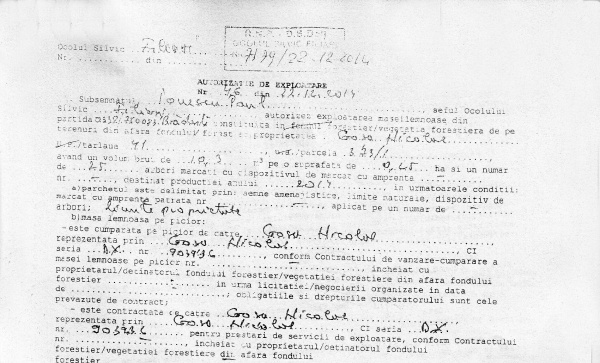 R.N.P. - D.S. Dolj
OCOLUL SILVIC FILIASI
Ocolul Silvic Filiasi
Nr. din 7479/22.12.2014
AUTORIZATIE DE EXPLOATARE
Nr 46 din 22.12.2014
Subsemnatul Ionescu Paul, seful Ocolului
Silvic Filiasi autorizez exploatarea masei lemnoase din
partida constituita in fondul forestier/vegetatia forestiera de pe
terenuri din afara fondului forestier proprietatea Gasa Nicolae
tarlaua 41, parcela 373/1
avand un volum brut de 10,3 m3 pe o suprafata de 0,45 ha si un numar
de 25 arbori marcati cu dispozitivul de marcat cu amprenta -
nr. -, destinat productiei anului 2014, in urmatoarele conditii:
a)parchetul este delimitat prin: semne amenajistice, limite naturale, dispozitiv de
marcat cu amprenta patrata nr. -, aplicat pe un numar de -
arbori; limite proprietate
b)masa lemnoasa pe picior:
-este cumparata pe picior de catre Gasa Nicolae
reprezentata prin Gasa Nicolae CI
seria DX nr. 903736, conform Contractului de vanzare-cumparare a
masei lemnoase pe picior nr. -, incheiat cu
proprietarul/detinatorul fondului forestier/vegetatiei forestiere din afara fondului
forestier - in urma licitatiei/negocierii organizate in data
de -; obligatiile si drepturile cumparatorului sunt cele
prevazute de contract;
- este contractata de catre Gasa Nicolae
reprezentata prin Gasa Nicolae CI seria DX
nr. 903736 pentru prestari de servicii de exploatare, conform Contractului
nr. -, incheiat cu proprietarul/detinatorul fondului
forestier/vegetatiei forestiere din afara fondului
forestier